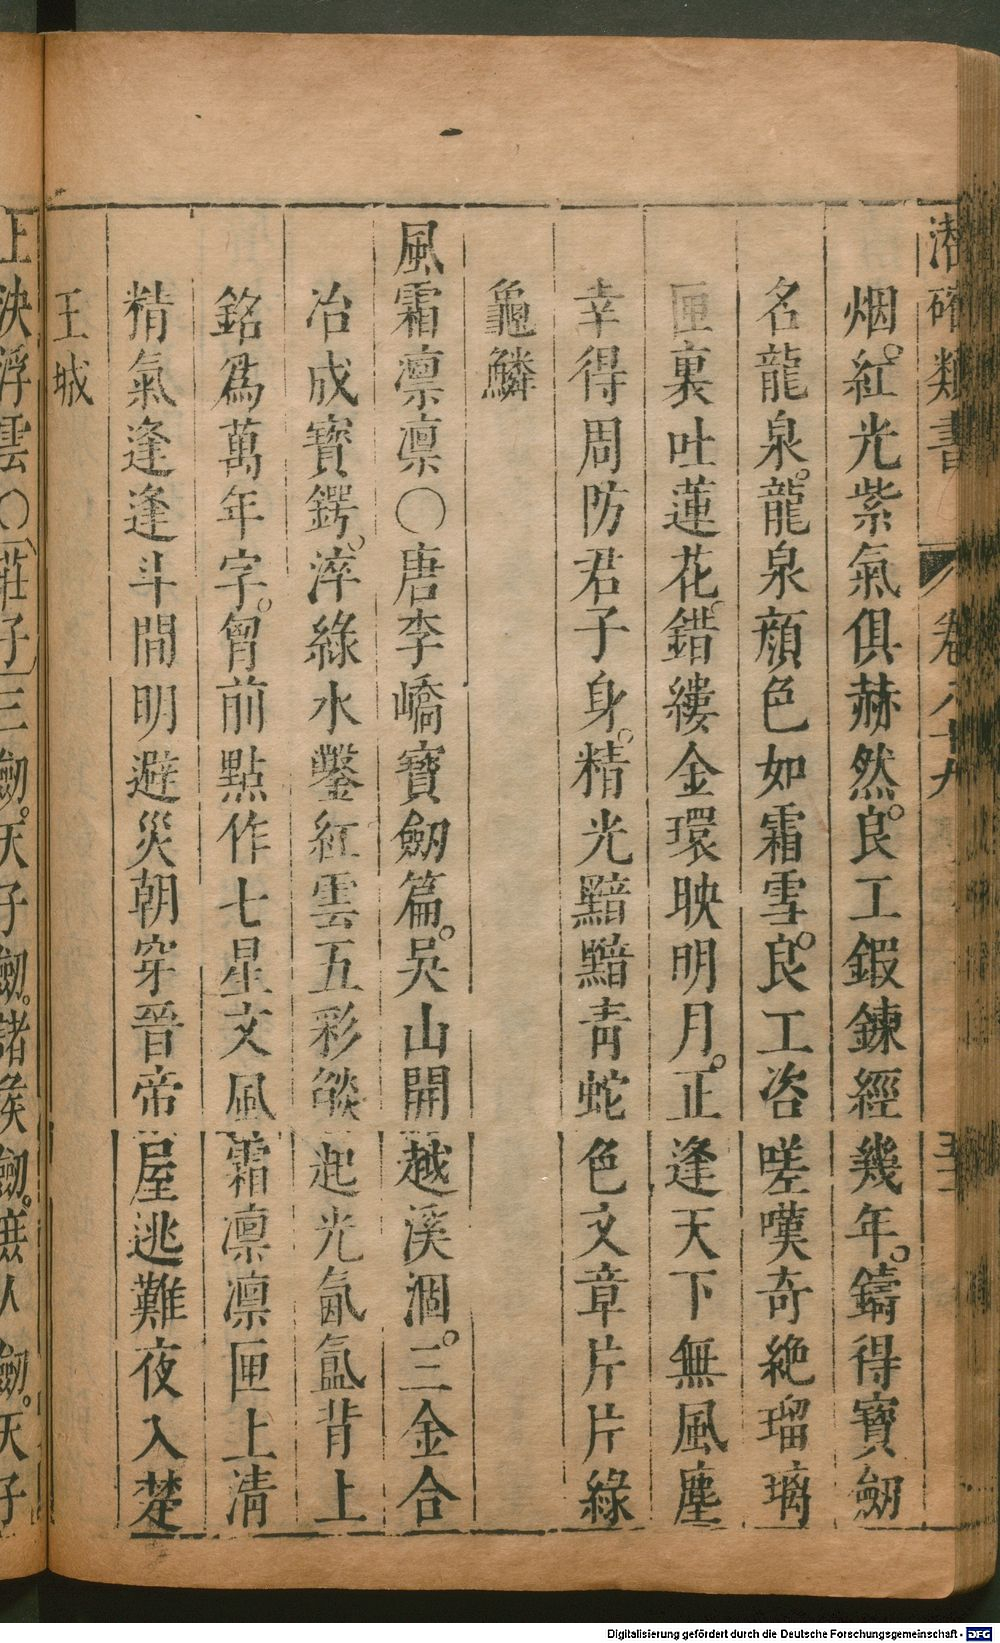 潛確類書 卷八十九
烟。紅光紫氣俱赫然。良工鍜鍊經幾年。鑄得寶劒
名龍泉。龍泉顔色如霜雪。良工咨嗟嘆奇絶瑠璃
匣裏吐蓮花。錯縷金環映明月。正逢天下無風塵
幸得周防君子身。精光黯黯靑蛇色文章片片綠
龜鱗
風霜凛凛○唐李嶠寶劒篇。吳山開越溪涸。三金合
冶成寶鍔。淬綠水鑒紅雲五彩燄起光氤氳背上
銘爲萬年字。胷前點作七星文風霜凛凛匣上淸
精氣逢逢斗間明避災朝穿晉帝屋逃難夜入楚
王城
上決浮雲○莊子三劒。天子劒。諸矦劒。庶人劒。天子
Digitalisierung gefördert durch die Deutsche Forschungsgemeinschaft - DFG